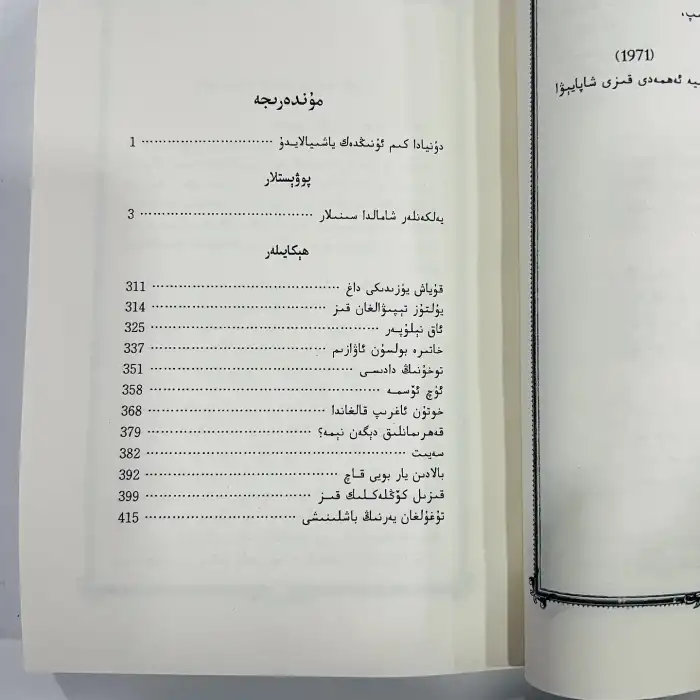 مۇندەرىجە
دۇنيادا كىم ئۇنىڭدەك ياشىيالايدۇ ································ 1
پوۋېستلار
يەلكەنلەر شامالدا سىنىلار ································ 3
ھېكايىلەر
قۇياش يۈزىدىكى داغ ································ 311
يۇلتۇز تېپىۋالغان قىز ································ 314
ئاق نىلۇپەر ································ 325
خاتىرە بولسۇن ئاۋازىم ································ 337
توخۇنىڭ دادىسى ································ 351
ئۈچ ئۆسمە ································ 358
خوتۇن ئاغرىپ قالغاندا ································ 368
قەھرىمانلىق دېگەن نېمە؟ ································ 379
سەيىت ································ 382
بالادىن يار بويى قاچ ································ 392
قىزىل كۆڭلەكلىك قىز ································ 399
تۇغۇلغان يەرنىڭ باشلىنىشى ································ 415
(1971)
ئەھمەدى قىزى شاپايېۋا